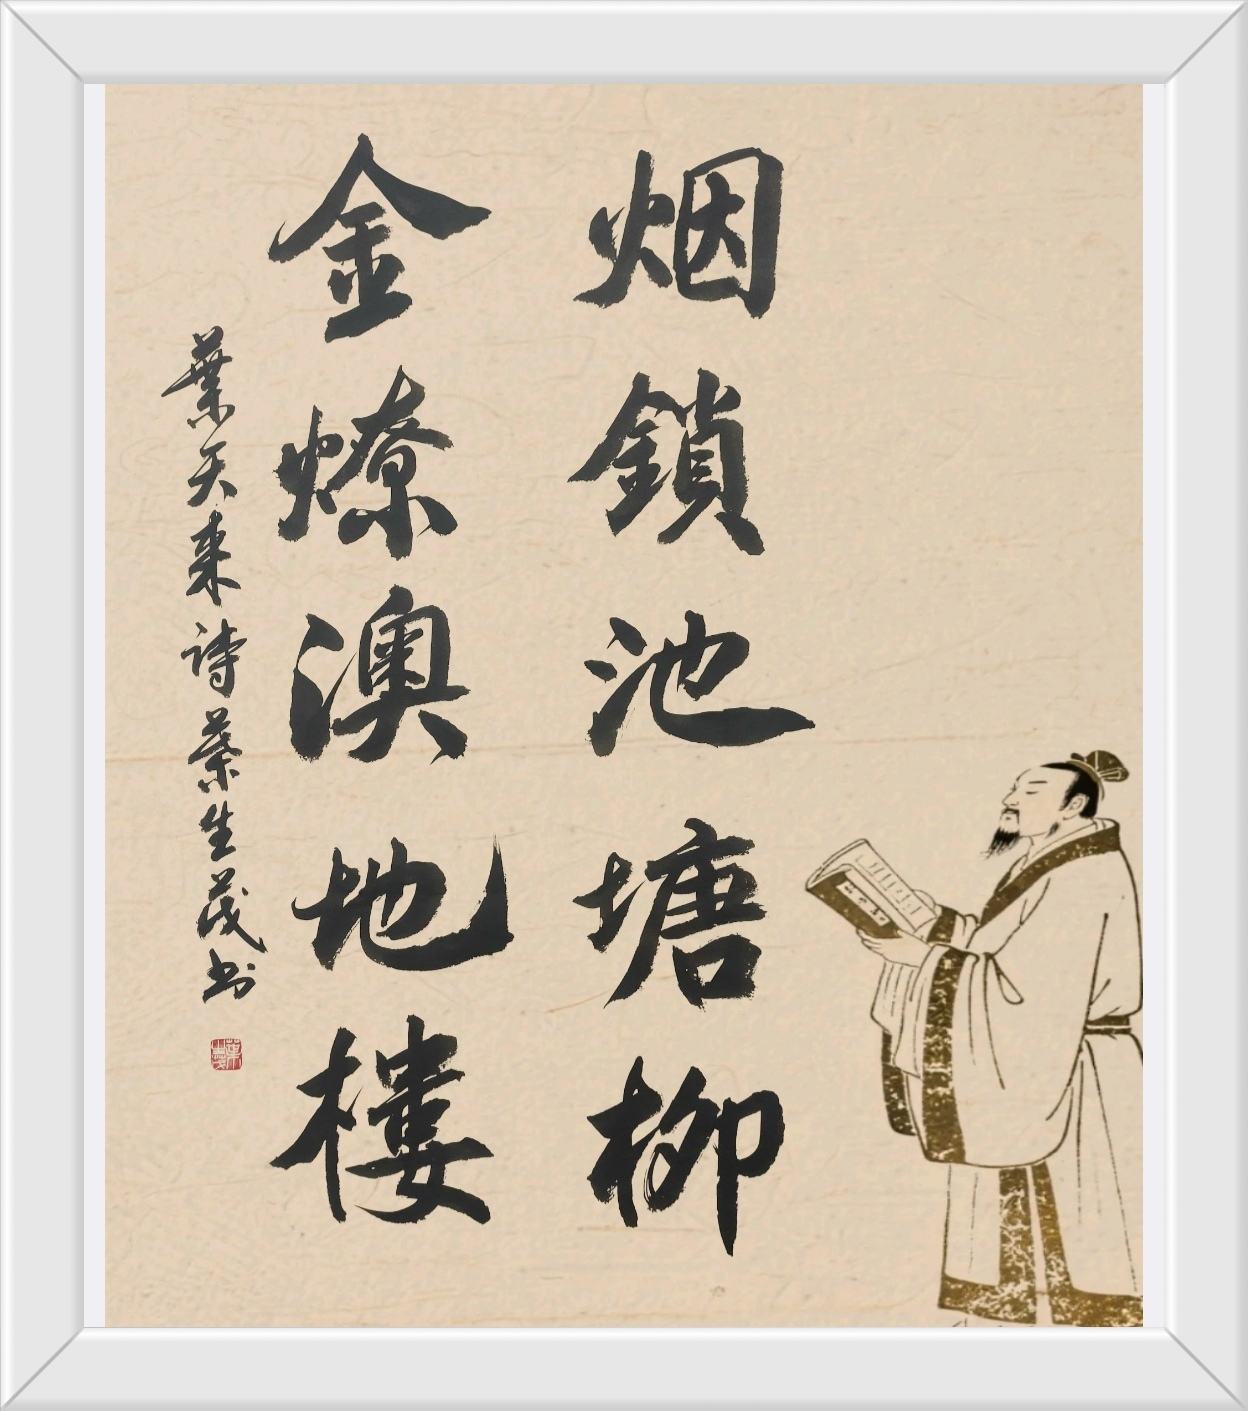 烟鎖池塘柳
金燎澳地樓
葉天来诗葉生茂书